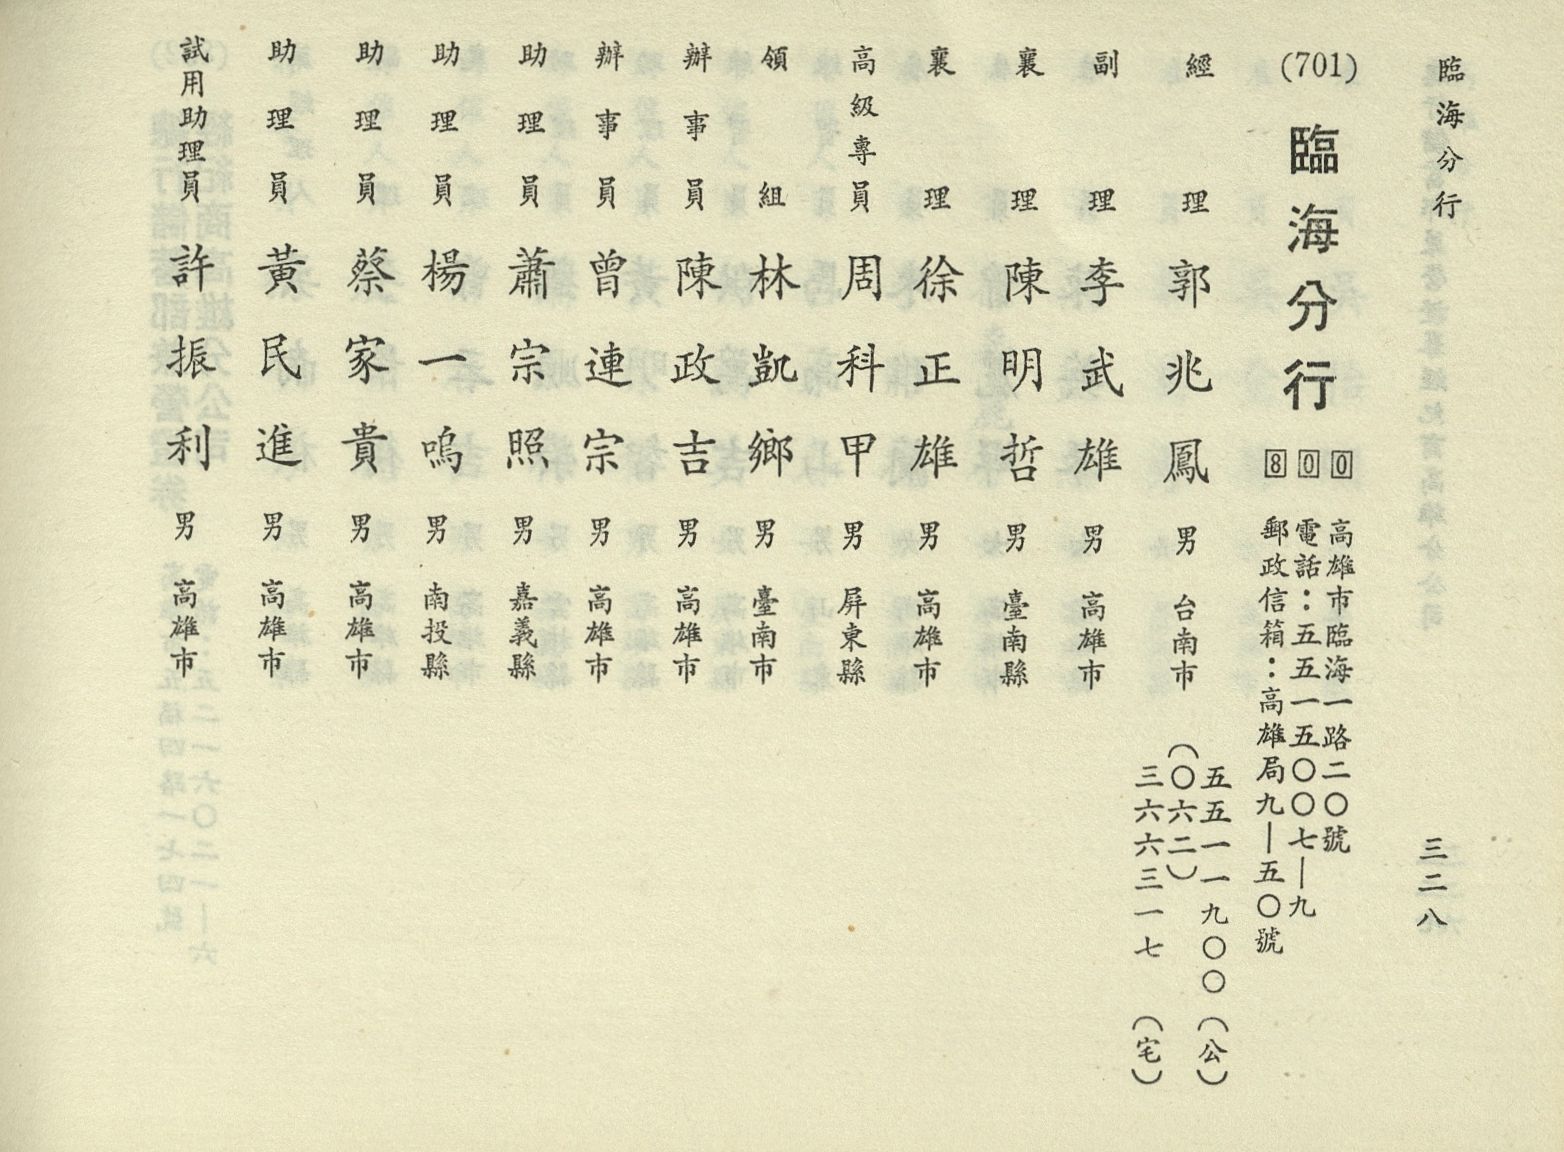 臨海分行
三二八
(701)
臨海分行
800
高雄市臨海一路二〇號
電話：五五一五〇〇七—九
郵政信箱：高雄局九—五〇號
經理 郭兆鳳 男 台南市
五五一一九〇〇（公）
（〇六二）
三六六三一七（宅）
副理 李武雄 男 高雄市
襄理 陳明哲 男 臺南縣
襄理 徐正雄 男 高雄市
高級專員 周科甲 男 屏東縣
領組 林凱鄉 男 臺南市
辦事員 陳政吉 男 高雄市
辦事員 曾連宗 男 高雄市
助理員 蕭宗照 男 嘉義縣
助理員 楊一鳴 男 南投縣
助理員 蔡家貴 男 高雄市
助理員 黃民進 男 高雄市
試用助理員 許振利 男 高雄市